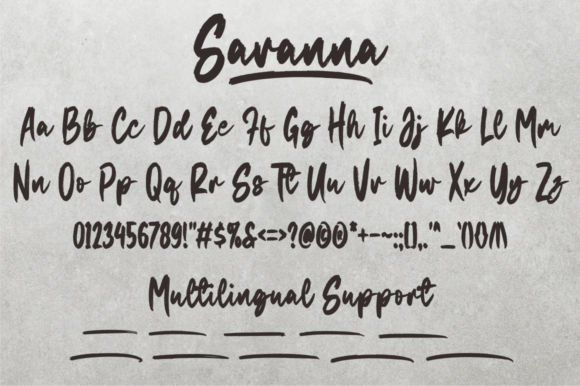 Savanna
Aa Bb Cc Dd Ee Ff Gg Hh Ii Jj Kk Ll Mm
Nn Oo Pp Qq Rr Ss Tt Uu Vv Ww Xx Yy Zz
0123456789!"#$%&<=>?@©®*+-~:;[],.'"^_`(){}/|\
Multilingual Support